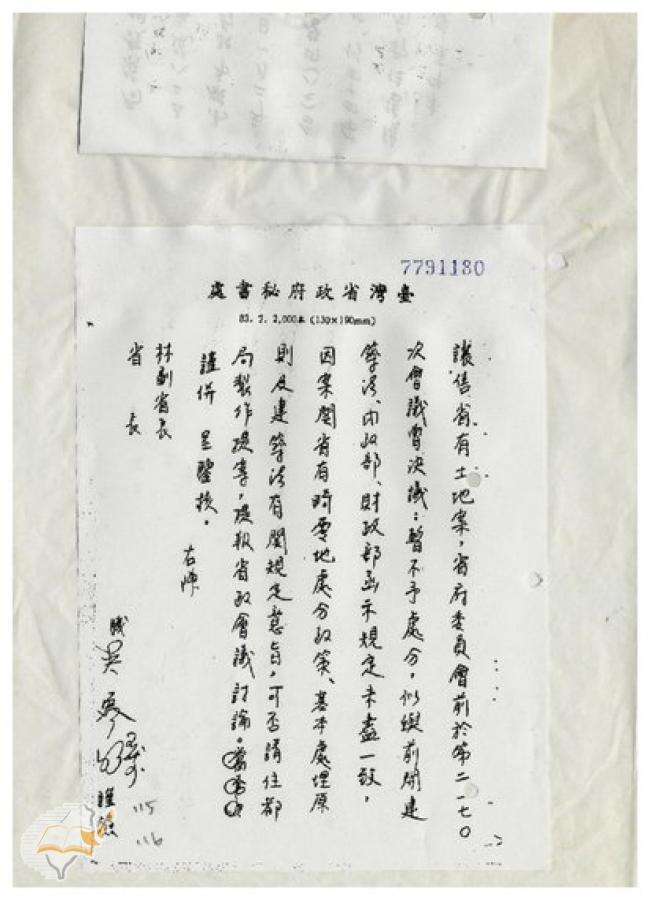 7791180
臺灣省政府秘書處
83. 7. 2,000本 (130×190mm)
讓售省有土地案，省府委員會前於第二一七〇
次會議曾決議：暫不予處分，似與前開建
築法、內政部、財政部函示規定未盡一致，
因案關省有畸零地處分政策、基本處理原
則及建築法有關規定意旨，可否請住都
局製作提案，提報省政會議討論。
謹併呈鑒核。
右陳
林副省長
省長
職吳
謹簽
115
116